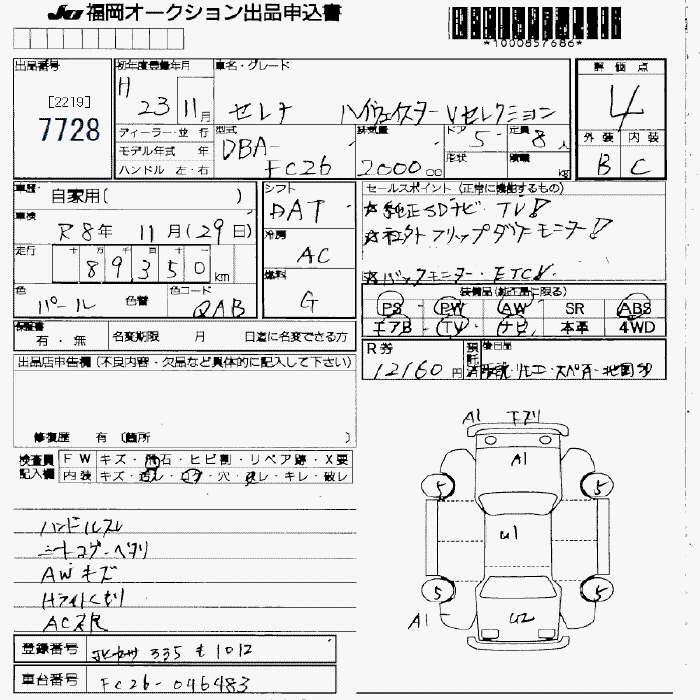 JU 福岡オークション出品申込書
*1000857686*
出品番号 初年度登録年月 車名・グレード 評価点
[2219]
7728
H 23 11月 セレナ ハイウェイスター Vセレクション 4
ディーラー・並 行 型式 排気量 ドア 定員 外装 内装
モデル年式 年 DBA- 5 8人 B C
ハンドル 左・右 FC26 2000 cc 形状 積載 kg
車歴 自家用( ) シフト DAT セールスポイント (正常に機能するもの)
車検 R8年 11月(29日) ☆純正SDナビ TV!
冷房 AC
走行 十 万 千 百 十 一
89350 km ☆バックモニター・ETC
燃料 G
色 パール 色替 色コード QAB 装備品(純正品に限る)
PS・PW・AW・SR ABS
エアB・TV・ナビ・本革・4WD
保証書 有・無 名変期限 月 日迄に名変できる方
R券 12160円 預託 後日品
出品店申告欄(不良内容・欠品など具体的に記入して下さい)
修復歴 有 (箇所 )
検査員記入欄 FW キズ・飛石・ヒビ割・リペア跡・X要
内装 キズ・汚レ・コゲ・穴・スレ・キレ・破レ
A1
A1
5 5
U1
5 5
A1 U2
ハンドルスレ
シートコゲ・ヘタリ
AWキズ
Hライトくもり
登録番号 335 1012
車台番号 FC26-046483